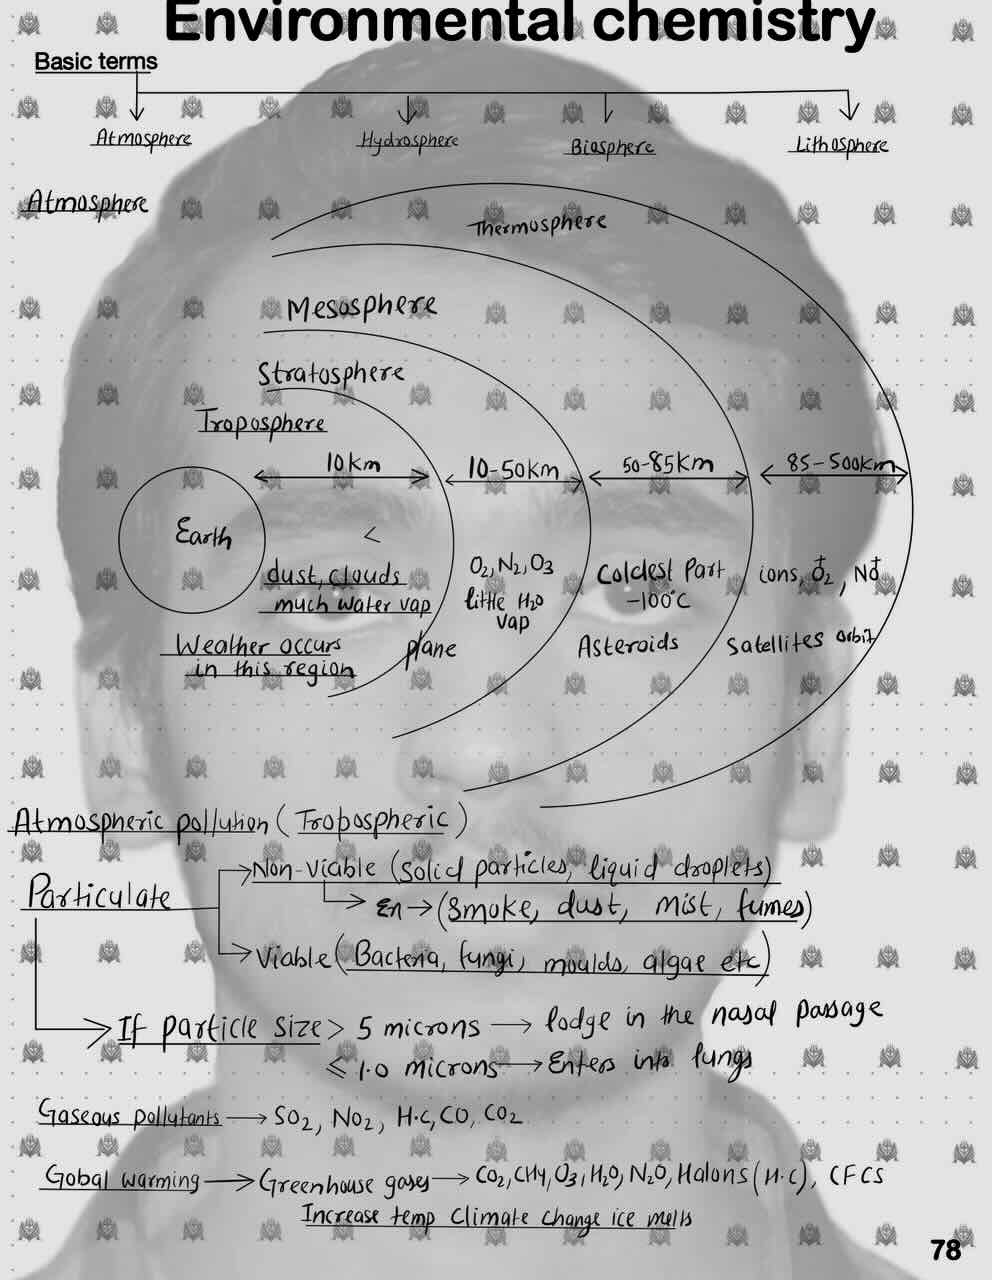 Environmental chemistry
Basic terms
Atmosphere Hydrosphere Biosphere Lithosphere
Atmosphere
Thermosphere
Mesosphere
Stratosphere
Troposphere
10km 10-50km 50-85km 85-500km
Earth <
dust, clouds O₂, N₂, O₃ Coldest Part ions, O₂⁺, NO⁺
much water vap little H₂O -100°C
vap
Weather occurs plane Asteroids Satellites orbit
in this region
Atmospheric pollution (Tropospheric)
Particulate
Non-Viable (solid particles, liquid droplets)
En → (smoke, dust, mist, fumes)
Viable (Bacteria, fungi, moulds, algae etc)
If particle size > 5 microns → lodge in the nasal passage
⩽ 1.0 microns → Enters into lungs
Gaseous pollutants → SO₂, NO₂, H.C, CO, CO₂
Gobal warming → Greenhouse gases → CO₂, CH4, O₃, H₂O, N₂O, Halons (H.C), CFCS
Increase temp climate change ice melts
78